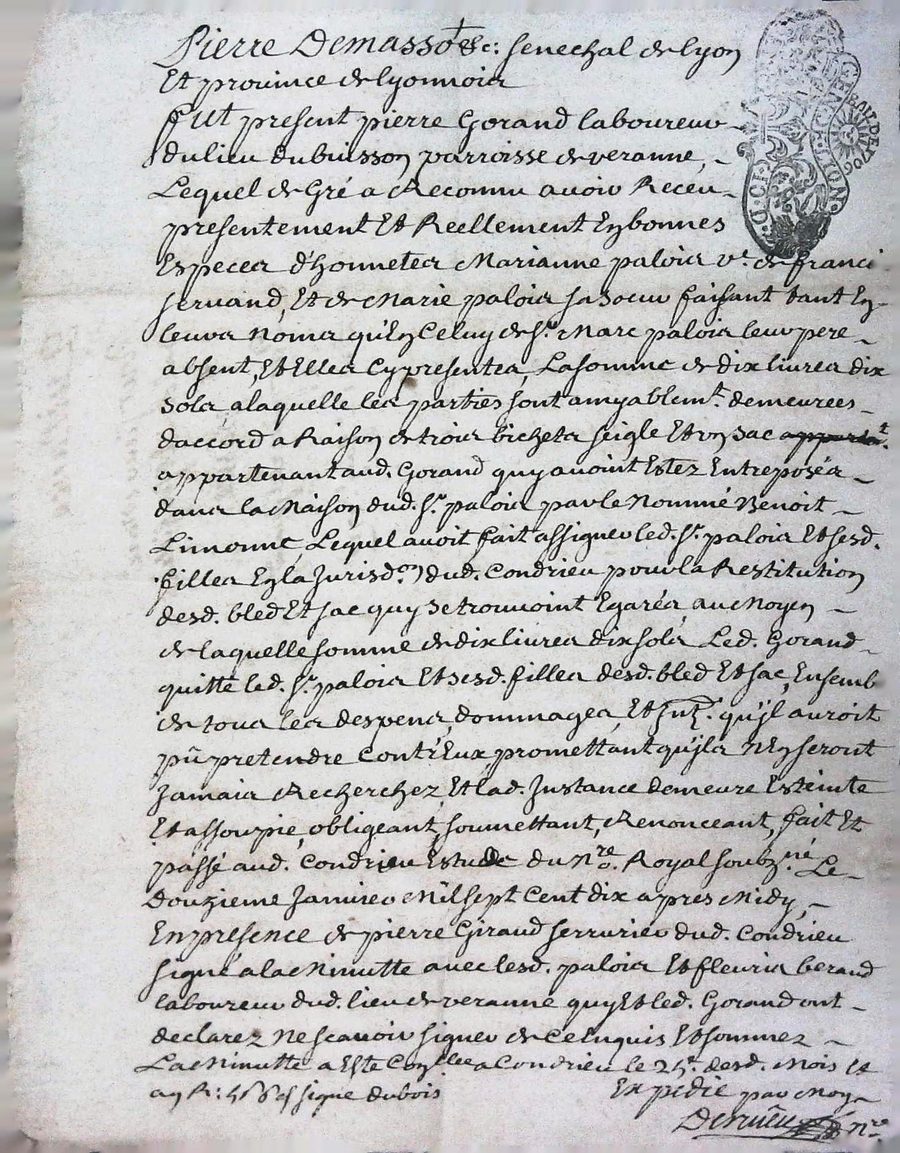 Pierre Demasso &c: senechal de lyon
Et province de lyonnois
fut present pierre Gorand laboureur
du lieu du buisson parroisse de veranne,
Lequel de Gré a Reconnu avoir Receu
presentement Et Reellement En bonnes
Especes d'honnetes Marianne palois v.e de franci
servand, Et de Marie palois sa soeur faisant tant En
leurs noms qu'En Celuy de s.r Marc palois leur pere
absent, Et Elles Cy presentes, La somme de dix livres dix
sols, a laquelle les parties sont amyablem.t demeurees
daccord a Raison de trois bichets seigle Et un sac
appartenant aud. Gorand quy avoint Estez Entreposés
dans la Maison dud. s.r palois par le Nommé Benoit
Limonne, Lequel avoit fait assigner led. s.r palois Et sesd.
filles En la Jurisd.on dud. Condrieu pour la Restitution
desd. bled Et sac quy se trouvoint Egarés au Moyen
de laquelle somme de dix livres dix sols Led. Gorand
quitte led. s.r palois Et sesd. filles desd. bled Et sac, Ensemb
de tous les despens, dommages, Et Int.s qu'jl auroit
pû pretendre Contr'Eux promettant qu'jls n'En seront
Jamais Recherchez, Et lad. Instance demeure Esteinte
Et assoupie, obligeant, soumettant, Renonceant, fait Et
passé aud. Condrieu Estude du n.re Royal soubz.né Le
Douzieme Janvier Mil sept Cent dix apres Midy,
En presence de pierre Giraud serrurier dud. Condrieu
signé a la Minutte avec lesd. palois Et fleuris berand
laboureur dud. lieu de veranne quy Et led. Gorand ont
declarez Ne scavoir signer de Ce Enquis Et sommez
La Minutte a Esté Con.llee a Condrieu le 25.e desd. Mois Et
an R: signé dubois
Expedié par Moy
n.re
GEN
LION